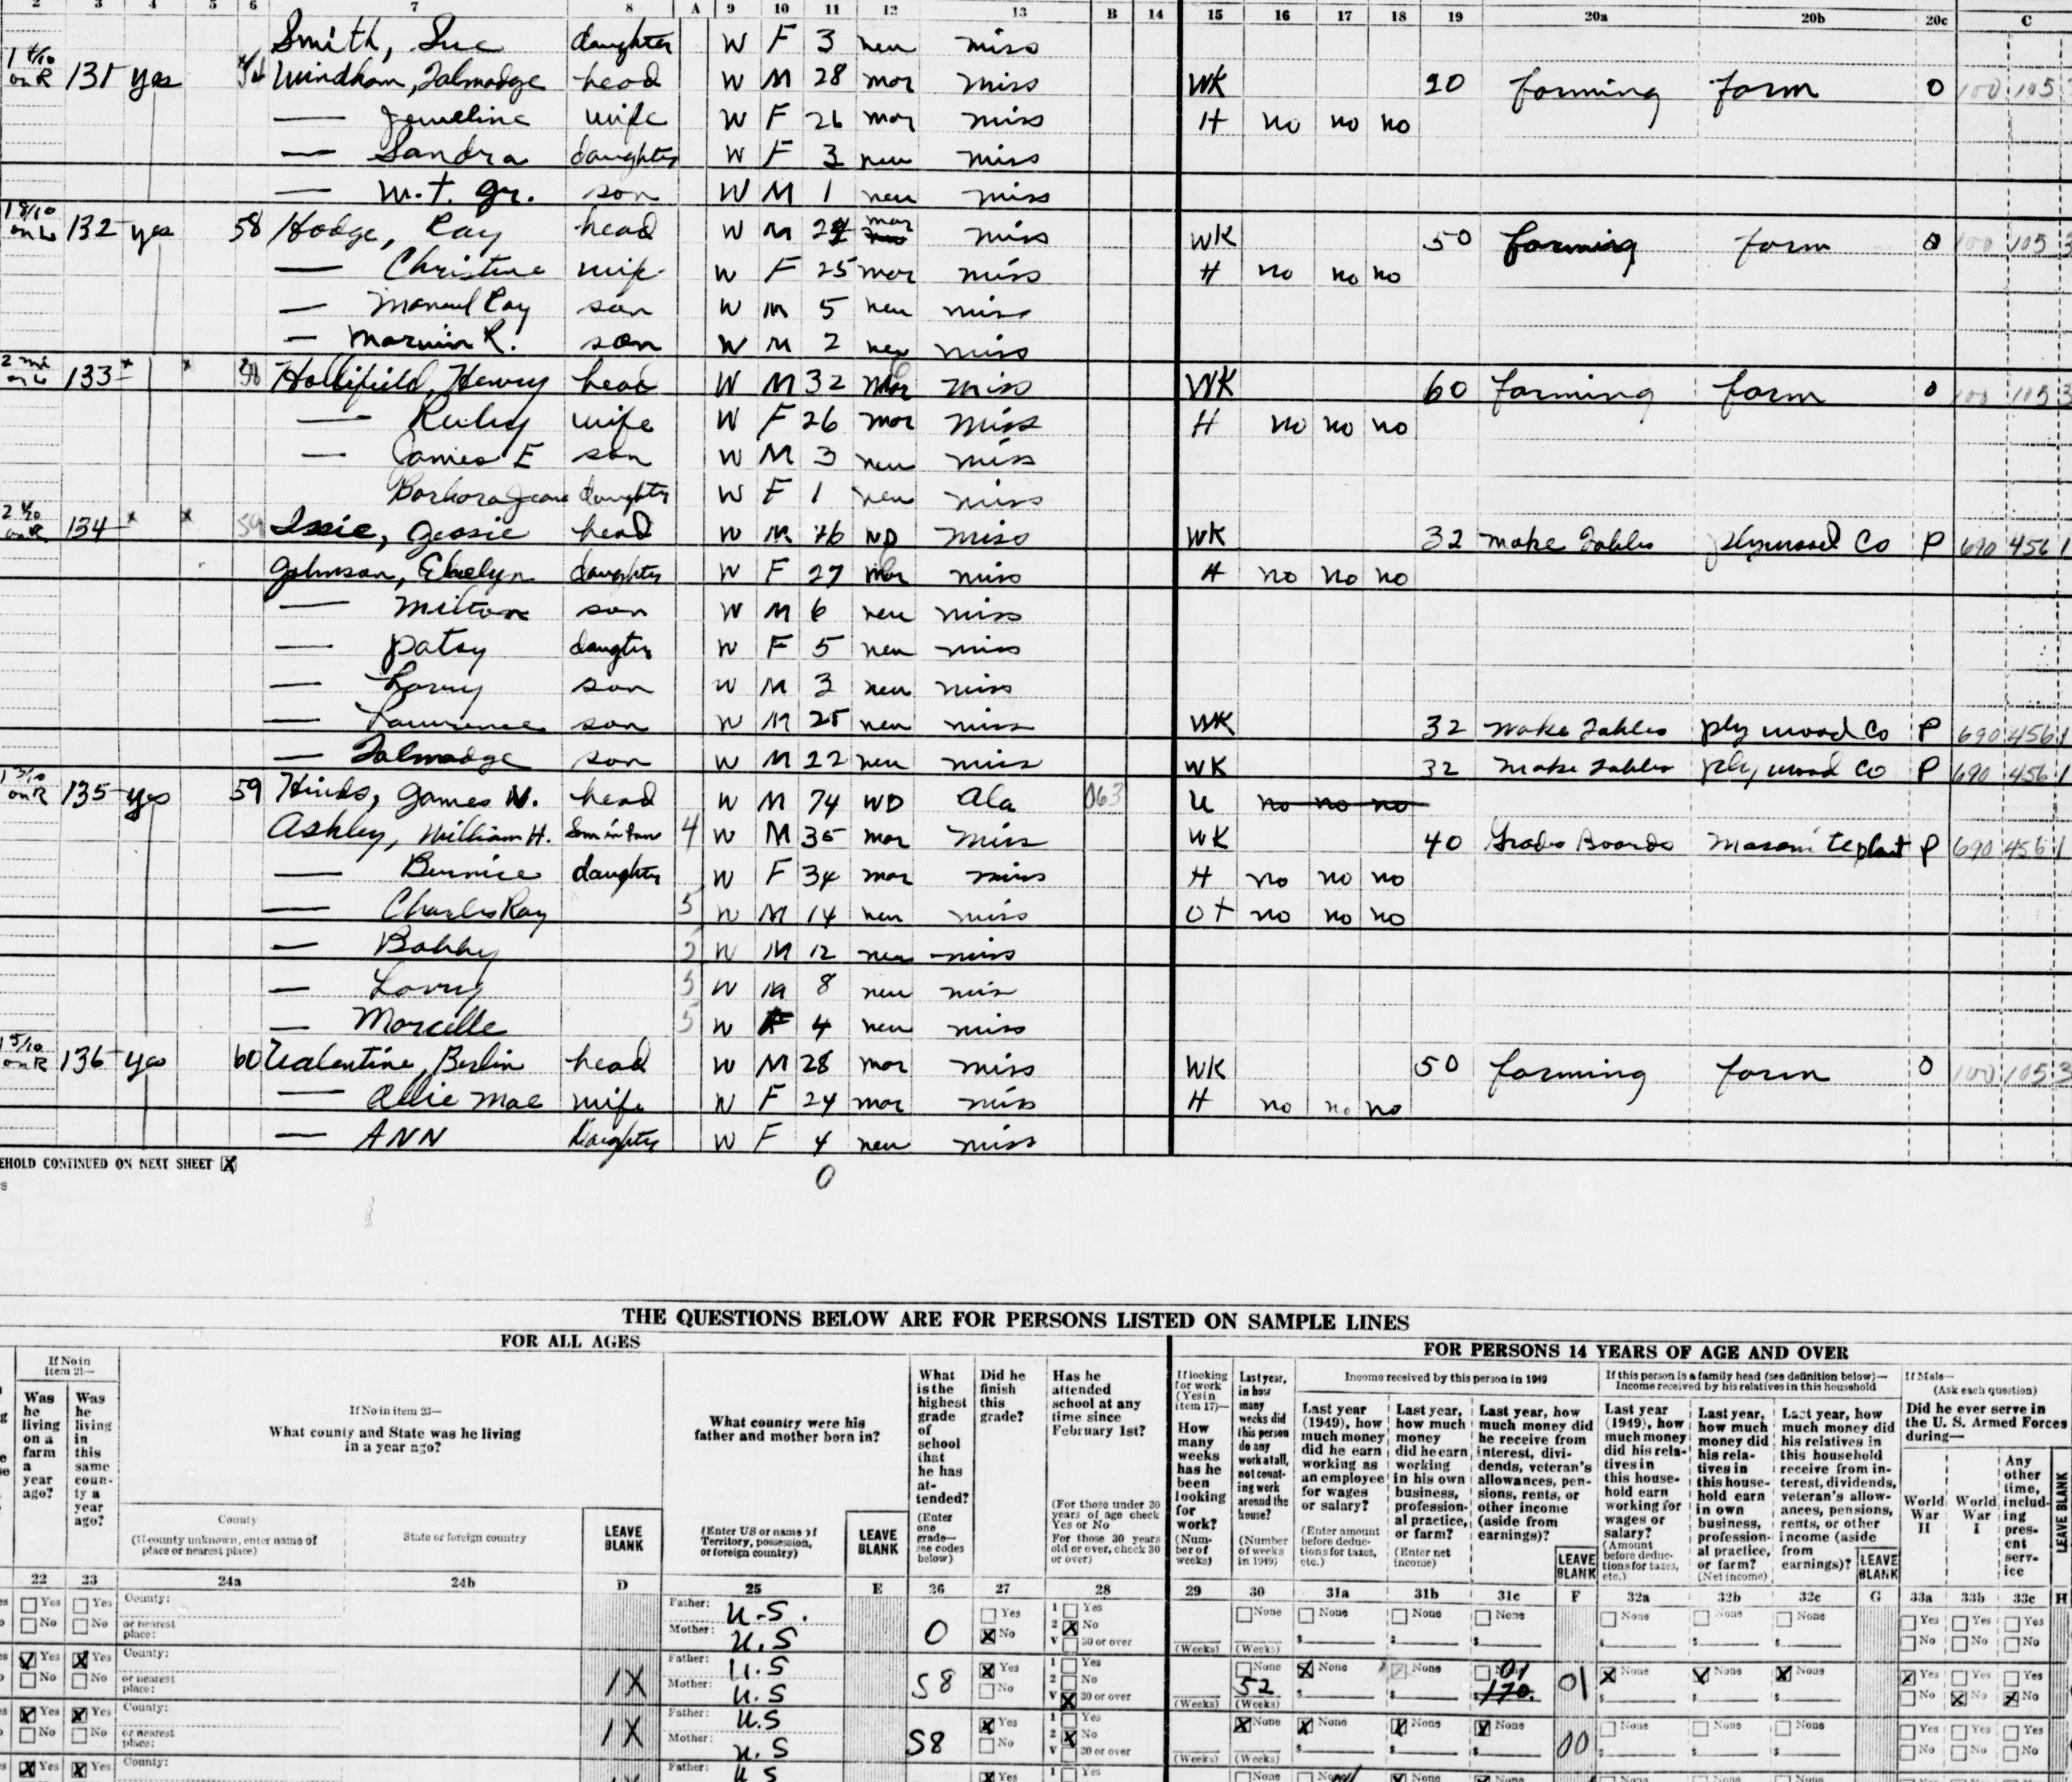 2 3 4 5 6 7 8 A 9 10 11 12 13 B 14 15 16 17 18 19 20a 20b 20c C
Smith, Sue daughter W F 3 nev miss
on R 131 yes Windham, Talmadge head W M 28 mar miss WK 20 farming farm O 100 105
— wife W F 26 mar miss H no no no
— Sandra daughter W F 3 nev miss
— M.T. Jr. son W M 1 nev miss
1 8/10 on L 132 yes 58 Hodge, Ray head W M mar miss WK 50 farming farm O 100 105 3
— Christine wife W F 25 mar miss H no no no
— Ray son W M 5 nev miss
— Marvin R. son W M 2 nev miss
on L 133 x x Hollifield, Henry head W M 32 mar miss WK 60 farming farm O 100 105 3
— Ruby wife W F 26 mar miss H no no no
— James E son W M 3 nev miss
Barbara Jean daughter W F 1 nev miss
on R 134 x x Jessie head W M 46 WD miss WK 32 make Tables plywood Co P 690 456 1
Johnson, Evelyn daughter W F 27 mar miss H no no no
— Milton son W M 6 nev miss
— Patsy daughter W F 5 nev miss
— Larry son W M 3 nev miss
— Lawrence son W M 25 nev miss WK 32 make Tables ply wood Co P 690 456 1
— Talmadge son W M 22 nev miss WK 32 make Tables ply wood Co P 690 456 1
on R 135 yes 59 Hinds, James W. head W M 74 WD Ala 063 U no no no
Ashley, William H. Son in law 4 W M 35 mar miss WK 40 Grades Boards Masonite plant P 690 456 1
— Bernice daughter W F 34 mar miss H no no no
— Charles Ray 5 W M 14 nev miss OT no no no
— Bobby 5 W M 12 nev miss
— Larry 5 W M 8 nev miss
— Marcelle 5 W F 4 nev miss
on R 136 yes 60 Valentine, Berlin head W M 28 mar miss WK 50 farming farm O 100 105 3
— Allie Mae wife W F 24 mar miss H no no no
— ANN Daughter W F 4 nev miss
EHOLD CONTINUED ON NEXT SHEET X
0
THE QUESTIONS BELOW ARE FOR PERSONS LISTED ON SAMPLE LINES
FOR ALL AGES
FOR PERSONS 14 YEARS OF AGE AND OVER
If No in item 21—
Was he living on a farm a year ago?
Was he living in this same county a year ago?
If No in item 23—
What county and State was he living in a year ago?
County
(If county unknown, enter name of place or nearest place)
State or foreign country
LEAVE BLANK
What country were his father and mother born in?
(Enter US or name of Territory, possession, or foreign country)
LEAVE BLANK
What is the highest grade of school that he has attended?
(Enter one grade—see codes below)
Did he finish this grade?
Has he attended school at any time since February 1st?
(For those under 30 years of age check Yes or No
For those 30 years old or over, check 30 or over)
If looking for work (Yes in item 17)—
How many weeks has he been looking for work?
(Number of weeks)
Last year, in how many weeks did this person do any work at all, not counting work around the house?
(Number of weeks in 1949)
Income received by this person in 1949
Last year (1949), how much money did he earn working as an employee for wages or salary?
(Enter amount before deductions for taxes, etc.)
Last year, how much money did he earn working in his own business, professional practice, or farm?
(Enter net income)
Last year, how much money did he receive from interest, dividends, veteran's allowances, pensions, rents, or other income (aside from earnings)?
LEAVE BLANK
If this person is a family head (see definition below)—
Income received by his relatives in this household
Last year (1949), how much money did his relatives in this household earn working for wages or salary?
(Amount before deductions for taxes, etc.)
Last year, how much money did his relatives in this household earn in own business, professional practice, or farm?
(Net income)
Last year, how much money did his relatives in this household receive from interest, dividends, veteran's allowances, pensions, rents, or other income (aside from earnings)?
LEAVE BLANK
If Male—
(Ask each question)
Did he ever serve in the U. S. Armed Forces during—
World War II
World War I
Any other time, including present service
LEAVE BLANK
22 23 24a 24b D 25 E 26 27 28 29 30 31a 31b 31c F 32a 32b 32c G 33a 33b 33c H
Yes Yes County: Father: U.S. Yes 1 Yes None None None None None None None Yes Yes Yes
No No or nearest place: Mother: U.S 0 X No 2 X No V 30 or over (Weeks) (Weeks) $ $ $ $ $ $ No No No
X Yes X Yes County: Father: U.S X Yes 1 Yes None X None None 01 X None X None X None X Yes Yes Yes
No No or nearest place: 1X Mother: U.S S8 No 2 No V X 30 or over (Weeks) 52 (Weeks) $ $ $ 170. 01 $ $ $ No X No X No
X Yes X Yes County: Father: U.S X Yes 1 Yes X None X None X None X None None None None Yes Yes Yes
No No or nearest place: 1X Mother: U.S S8 No 2 X No V 30 or over (Weeks) (Weeks) $ $ $ 00 $ $ $ No No No
X Yes X Yes County: Father: U.S X Yes 1 Yes None None None None None None None Yes Yes Yes